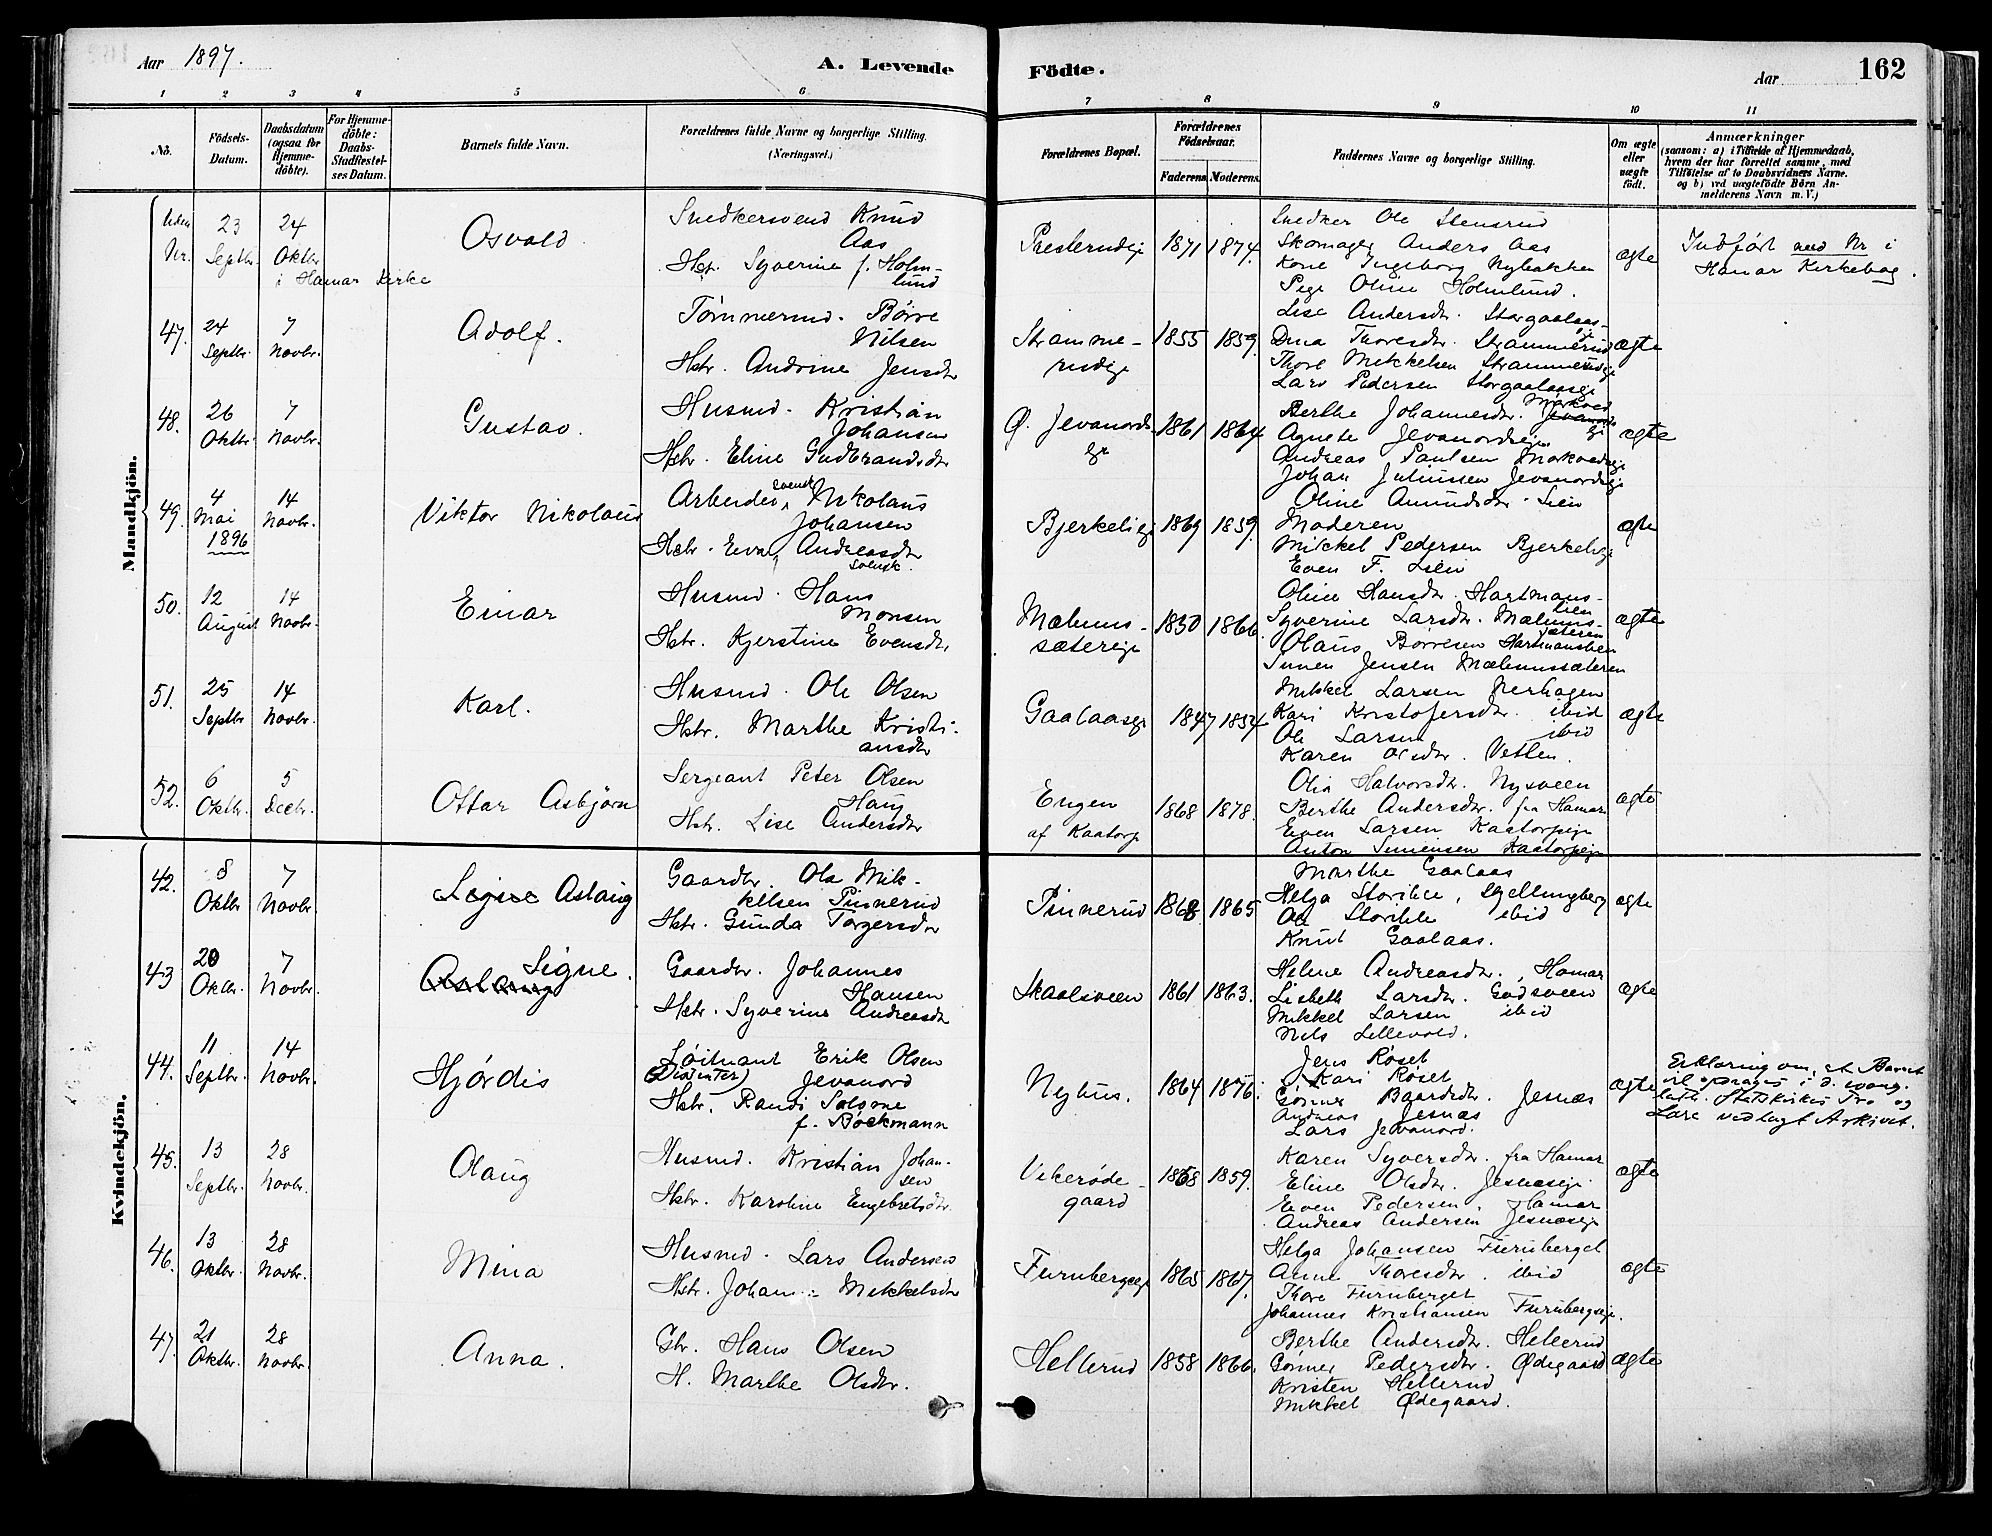 Aar 1897.
A. Levende
Fødte.
Aar
162
1 2 3 4 5 6 7 8 9 10 11
No.
Fødsels-
Datum.
Daabsdatum
(ogsaa for
Hjemme-
døbte).
For Hjemme-
døbte:
Daabs-
Stadfæstel-
ses Datum.
Barnets fulde Navn.
Forældrenes fulde Navne og borgerlige Stilling.
(Næringsvei.)
Forældrenes Bopæl.
Forældrenes
Fødselsaar.
Faderens. Moderens.
Faddernes Navne og borgerlige Stilling.
Om ægte
eller
uægte
født.
Anmærkninger
(saasom: a) i Tilfælde af Hjemmedaab,
hvem der har forrettet samme, med
Tilføielse af to Daabsvidners Navne.
og b) ved uægtefødte Børn An-
melderens Navn m. V.)
Mandkjøn.
Uden
Nr.
23
Septbr.
24
Oktbr.
i Hamar Kirke
Osvald
Snedkersvend Knud
Aas
Hstr. Syverine f. Holm-
lund
Presterudeje
1871 1874.
Snedker Ole Stensrud
Skomager Anders Aas
Kone Ingeborg Nybakken
Pige Oline Holmlund.
ægte
Indført med Nr i
Hamar Kirkebog.
47.
24
Septbr.
7
Novbr.
Adolf.
Tømmermd. Børre
Nilsen
Hstr. Andrine Jensdtr
Stramme-
rudeje
1855 1859.
Lise Andersdtr. Storgaalaas-
eje
Dina Thoresdtr. Strammerud
Thore Mikkelsen Strammerudeje
Lars Pedersen Storgaalaaseje
ægte
48.
26
Oktbr.
7
Novbr.
Gustav.
Husmd. Kristian
Johansen
Hstr. Eline Gudbrandsdtr
Ø. Jevanords-
eje
1861 1864
Berthe Johannesdtr. Morkved
eje
Agnete Jevanordseje
Andreas Paulsen Morkvedeje
Johan Juliussen Jevanordseje
ægte
49.
4
Mai
1896
14
Novbr.
Viktor Nikolaus
Arbeider, svensk Nikolaus
Johansen
Hstr. Eva Andreasdtr
svensk.
Bjerkelieje
1869 1859.
Oline Amundsdtr. Lien
Moderen
Mikkel Pedersen Bjerkelieje
Even F. Lien
ægte
50.
12
August
14
Novbr.
Einar
Husmd. Hans
Monsen
Hstr. Kjerstine Evensdtr.
Mælums-
sætereje
1850 1866.
Oline Hansdtr. Hartmans-
lien
Syverine Larsdtr. Mælums-
sæteren
Olaus Børresen Hartmanslien
Simen Jensen Mælumssæteren
ægte
51.
25
Septbr
14
Novbr.
Karl.
Husmd. Ole Olsen
Hstr. Marthe Kristi-
ansdtr
Gaalaaseje
1847 1854
Mikkel Larsen Nerhagen
Kari Kristofersdtr. ibid
Ole Larsen ibid
Karen Olsdtr. Vetlen.
ægte
52.
6
Oktbr.
5
Decbr.
Ottar Asbjørn
Sergeant Peter Olsen
Haug
Hstr. Lise Andersdtr
Engen
af Kaatorp
1868 1878.
Olia Halvorsdtr. Nysveen
Berthe Andersdtr. fra Hamar
Even Larsen Kaatorpeje
Anton Simensen Kaatorpeje
ægte
Kvindekjøn.
42.
8
Oktbr
7
Novbr.
Signe Aslaug
Gaardbr. Ole Mik-
kelsen Pinnerud
Hstr. Gunda Torgersdtr
Pinnerud
1868 1865
Marthe Gaalaas
Helga Storihle, Skjellingberg
Ole Storihle ibid
Knut Gaalaas.
ægte
43
20
Oktbr.
7
Novbr.
Signe.
Aslaug
Gaardbr. Johannes
Hansen
Hstr. Syverine Andreasdtr
Skaalsveen
1861 1863.
Helene Andreasdtr., Hamar
Lisbeth Larsdtr. Godsveen
Mikkel Larsen ibid
Nils Lillevold.
ægte
44.
11
Septbr.
14
Novbr.
Hjørdis
Løitnant Erik Olsen
(Dissenter) Jevanord
Hstr. Randi Salome
f. Bøckmann
Nyhus.
1864 1876.
Jens Røset
Kari Røset
Gønner Baardsdtr. Jesnæs
Andreas Jesnæs
Lars Jevanord.
ægte
Erklæring om, at Barnet
vil opdrages i d. evang.
luth. Statskirkes Tro og
Lære vedlagt Arkivet.
45.
13
Septbr.
28
Novbr.
Olaug
Husmd. Kristian Johan-
sen
Hstr. Karoline Engebretsdtr.
Vikerøde-
gaard
1868 1859.
Karen Syversdtr. fra Hamar
Eline Olsdtr. Jesnæseje
Even Pedersen. Hamar
Andreas Andersen Jesnæseje
ægte
46.
13
Oktbr.
28
Novbr.
Mina
Husmd. Lars Andersen
Hstr. Johanne Mikkelsdtr
Furubergeje
1865 1867.
Helga Johansen Furuberget
Anne Thoresdtr. ibid
Thore Furuberget
Johannes Kristiansen Furubergeje.
ægte
47.
21
Oktbr.
28
Novbr.
Anna.
Gbr. Hans Olsen
H. Marthe Olsdtr.
Hellerud
1858 1866.
Berthe Andersdtr. Hellerud
Gønner Pedersdtr. Ødegaard
Kristen Hellerud
Mikkel Ødegaard.
ægte